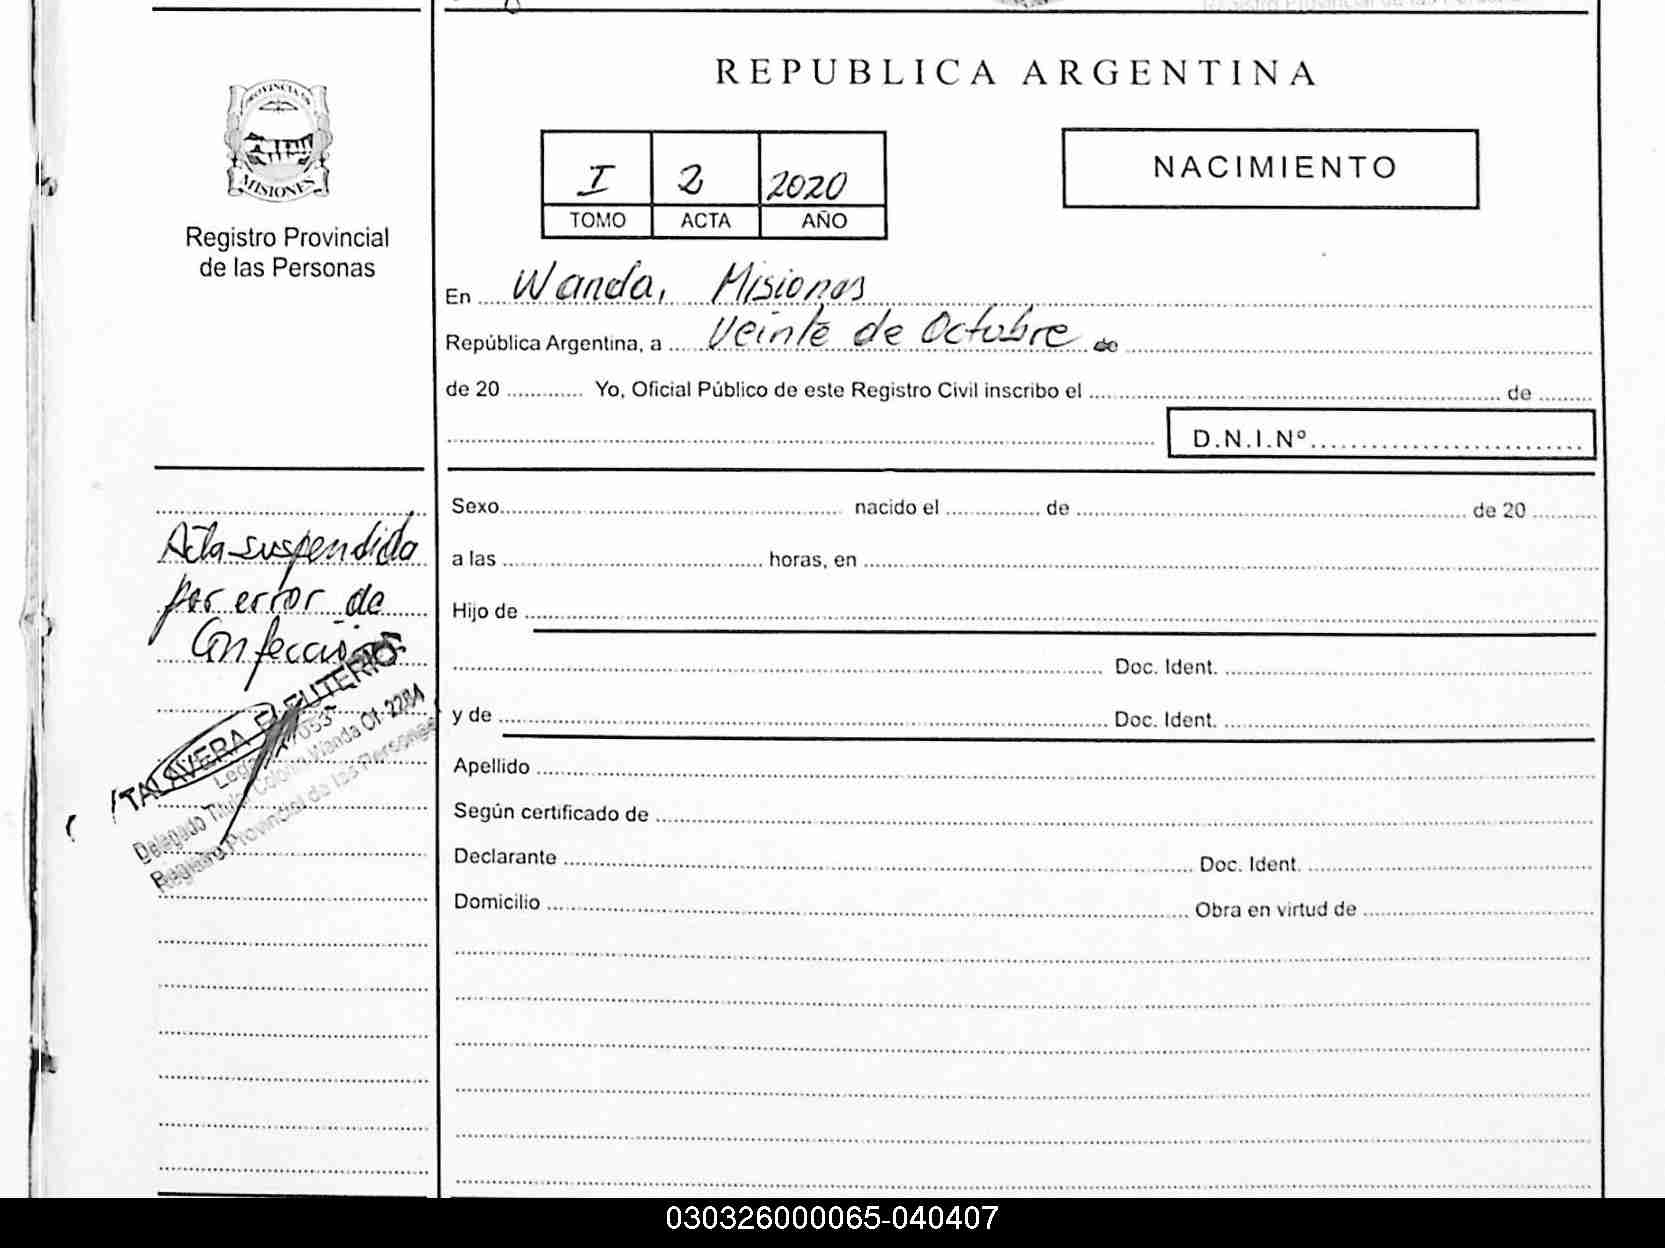 REPUBLICA ARGENTINA
PROVINCIA DE
MISIONES
Registro Provincial
de las Personas
I 2 2020
TOMO ACTA AÑO
NACIMIENTO
En Wanda, Misiones
República Argentina, a Veinte de Octubre de
de 20 Yo, Oficial Público de este Registro Civil inscribo el de
D.N.I.Nº
Sexo nacido el de de 20
a las horas, en
Hijo de
Doc. Ident.
y de Doc. Ident.
Apellido
Según certificado de
Declarante Doc. Ident.
Domicilio Obra en virtud de
Acta suspendida
por error de
Confección
TALAVERA ELEUTERIO
Delegado Titular Colonia Wanda Of. 2284
Registro Provincial de las Personas
030326000065-040407